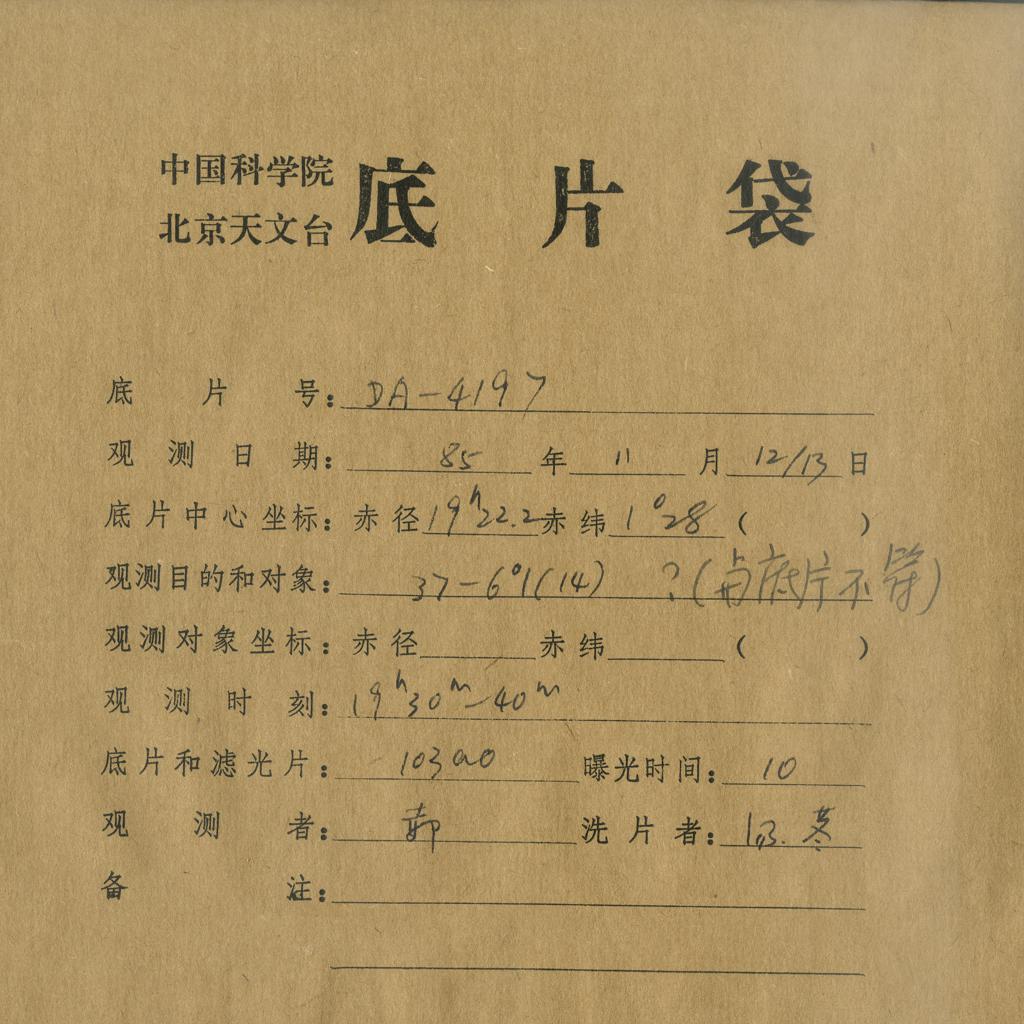 中国科学院
北京天文台
底片袋
底片号: DA-4197
观测日期: 85 年 11 月 12/13 日
底片中心坐标: 赤径 19ʰ22.2 赤纬 1°28 ( )
观测目的和对象: 37-6°1(14) ? (与底片不符)
观测对象坐标: 赤径 赤纬 ( )
观测时刻: 19ʰ30ᵐ-40ᵐ
底片和滤光片: 103aO 曝光时间: 10
观测者: 洗片者:
备注: